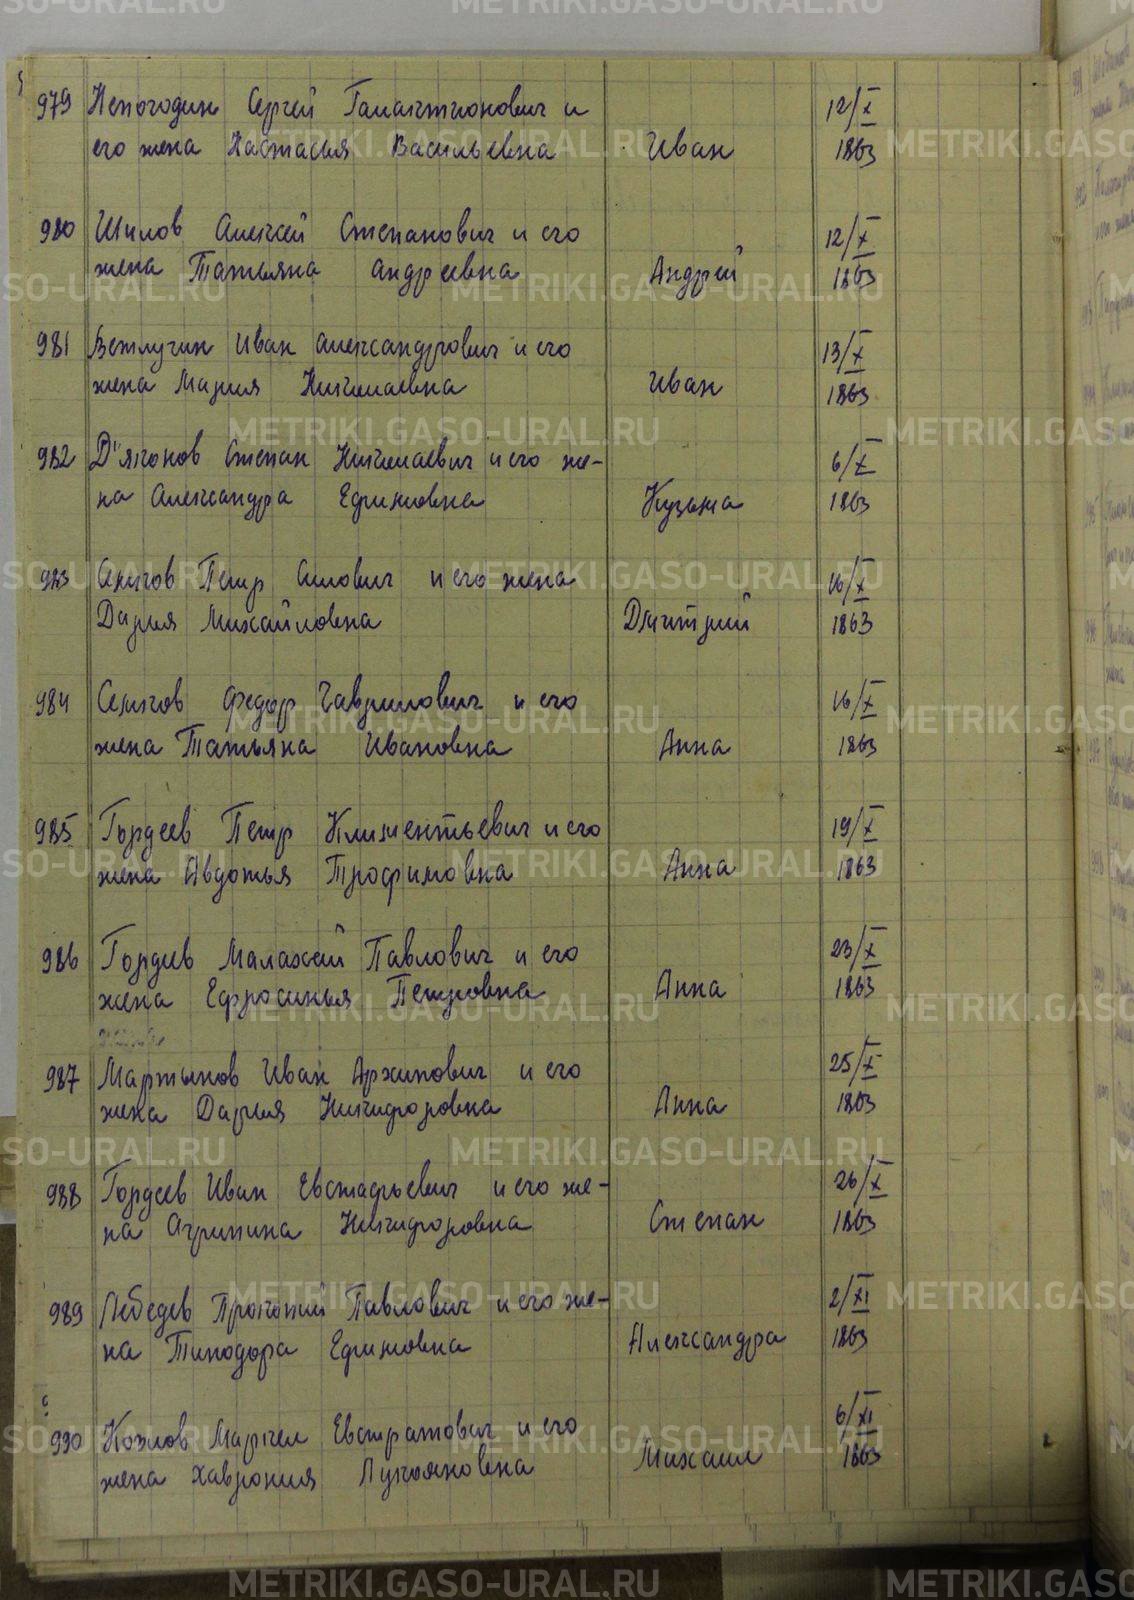 979 Непогодин Сергей Галактионович и
его жена Настасья Васильевна Иван 12/X 1863
980 Шилов Алексей Степанович и его
жена Татьяна Андреевна Андрей 12/X 1863
981 Ветлугин Иван Александрович и его
жена Мария Николаевна Иван 13/X 1863
982 Дъяконов Степан Николаевич и его же-
на Александра Ефимовна Кузьма 6/X 1863
983 Петр Силович и его жена
Дарья Михайловна Дмитрий 16/X 1863
984 Федор Гаврилович и его
жена Татьяна Ивановна Анна 16/X 1863
985 Гордеев Петр Климентьевич и его
жена Авдотья Трофимовна Анна 19/X 1863
986 Гордеев Малахей Павлович и его
жена Ефросинья Петровна Анна 23/X 1863
987 Мартынов Иван Архипович и его
жена Дарья Никифоровна Анна 25/X 1863
988 Гордеев Иван Евстафьевич и его же-
на Агрипина Никифоровна Степан 26/X 1863
989 Лебедев Прокопий Павлович и его же-
на Тиодора Ефимовна Александра 2/XI 1863
990 Козлов Маркел Евстратович и его
жена Хаврония Лукояновна Михаил 6/XI 1863
METRIKI.GASO-URAL.RU